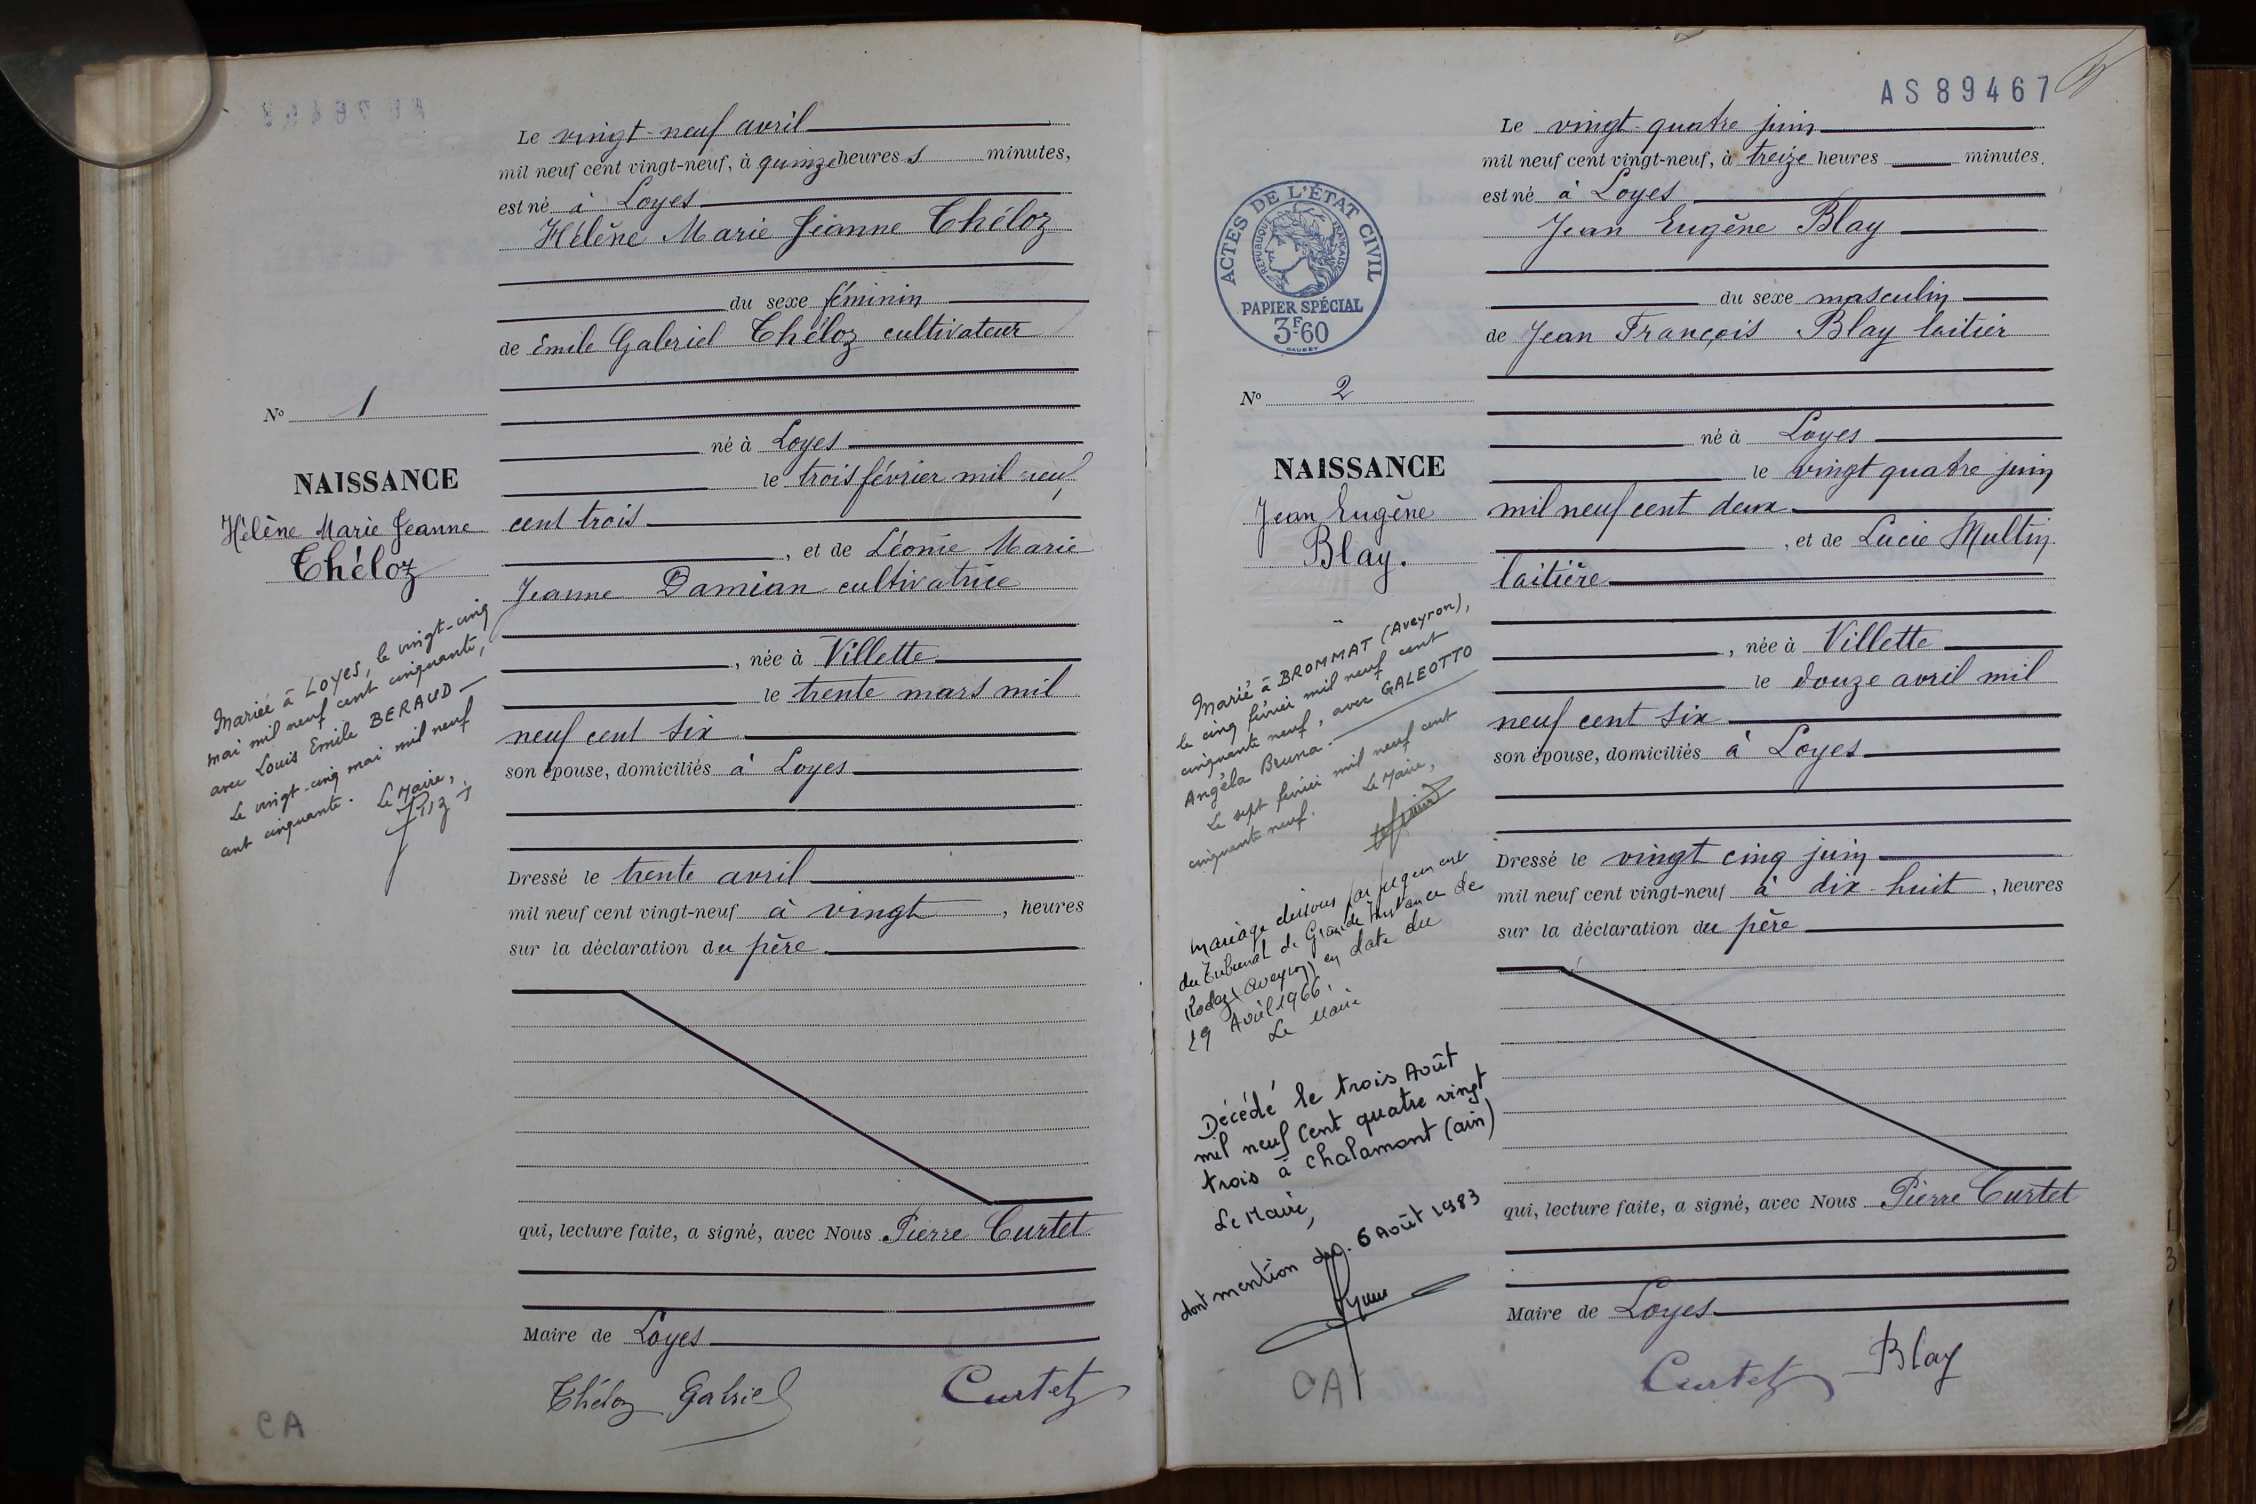 Le vingt-neuf avril
mil neuf cent vingt-neuf, à quinze heures minutes,
est né à Loyes
Hélène Marie Jeanne Théloz
du sexe féminin
de Emile Gabriel Théloz cultivateur
né à Loyes
le trois février mil neuf
cent trois
, et de Léonie Marie
Jeanne Damian cultivatrice
, née à Villette
le trente mars mil
neuf cent six
son épouse, domiciliés à Loyes
Dressé le trente avril
mil neuf cent vingt-neuf à vingt , heures
sur la déclaration du père
qui, lecture faite, a signé, avec Nous Pierre Curtet
Maire de Loyes
Théloz Gabriel Curtet
No 1
NAISSANCE
Hélène Marie Jeanne
Théloz
Mariée à LOYES, le vingt-cinq
mai mil neuf cent cinquante,
avec Louis Emile BERAUD
Le vingt-cinq mai mil neuf
cent cinquante. Le Maire,
CA
AS89467
Le vingt-quatre juin
mil neuf cent vingt-neuf, à treize heures minutes.
est né à Loyes
Jean Eugène Blay
du sexe masculin
de Jean François Blay laitier
né à Loyes
le vingt quatre juin
mil neuf cent deux
, et de Lucie Multin
laitière
, née à Villette
le douze avril mil
neuf cent six
son épouse, domiciliés à Loyes
Dressé le vingt cinq juin
mil neuf cent vingt-neuf à dix-huit , heures
sur la déclaration du père
qui, lecture faite, a signé, avec Nous Pierre Curtet
Maire de Loyes
Curtet Blay
ACTES DE L'ÉTAT CIVIL
RÉPUBLIQUE FRANÇAISE
PAPIER SPÉCIAL
3F60
No 2
NAISSANCE
Jean Eugène
Blay.
Marié à BROMMAT (Aveyron),
le cinq février mil neuf cent
cinquante neuf, avec GALEOTTO
Angéla Bruna.
Le sept février mil neuf cent
cinquante neuf. Le Maire,
Mariage dissous par jugement
du Tribunal de Grande Instance de
Rodez (Aveyron) en date du
29 Avril 1966.
Le Maire
Décédé le trois Août
mil neuf cent quatre vingt
trois à Chalamont (ain)
Le Maire,
dont mention 6 Août 1983
CA